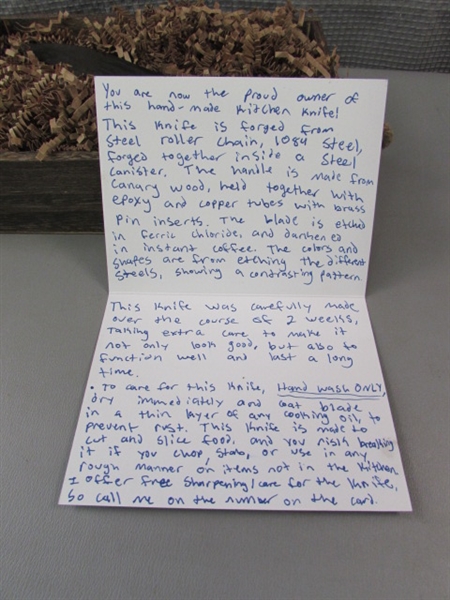 You are now the proud owner of
this hand-made kitchen knife!
This knife is forged from
Steel roller chain, 1084 steel,
forged together inside a steel
canister. The handle is made from
Canary wood, held together with
epoxy and copper tubes with brass
pin inserts. The blade is etched
in ferric chloride, and darkened
in instant coffee. The colors and
shapes are from etching the different
steels, showing a contrasting pattern.
This knife was carefully made
over the course of 2 weeks,
Taking extra care to make it
not only look good, but also to
function well and last a long
time.
• To care for this knife, Hand wash ONLY,
dry immediately and coat blade
in a thin layer of any cooking oil, to
prevent rust. This knife is made to
cut and slice food, and you risk breaking
it if you chop, stab, or use in any
rough manner on items not in the kitchen
I offer free sharpening/care for the knife,
so call me on the number on the card.